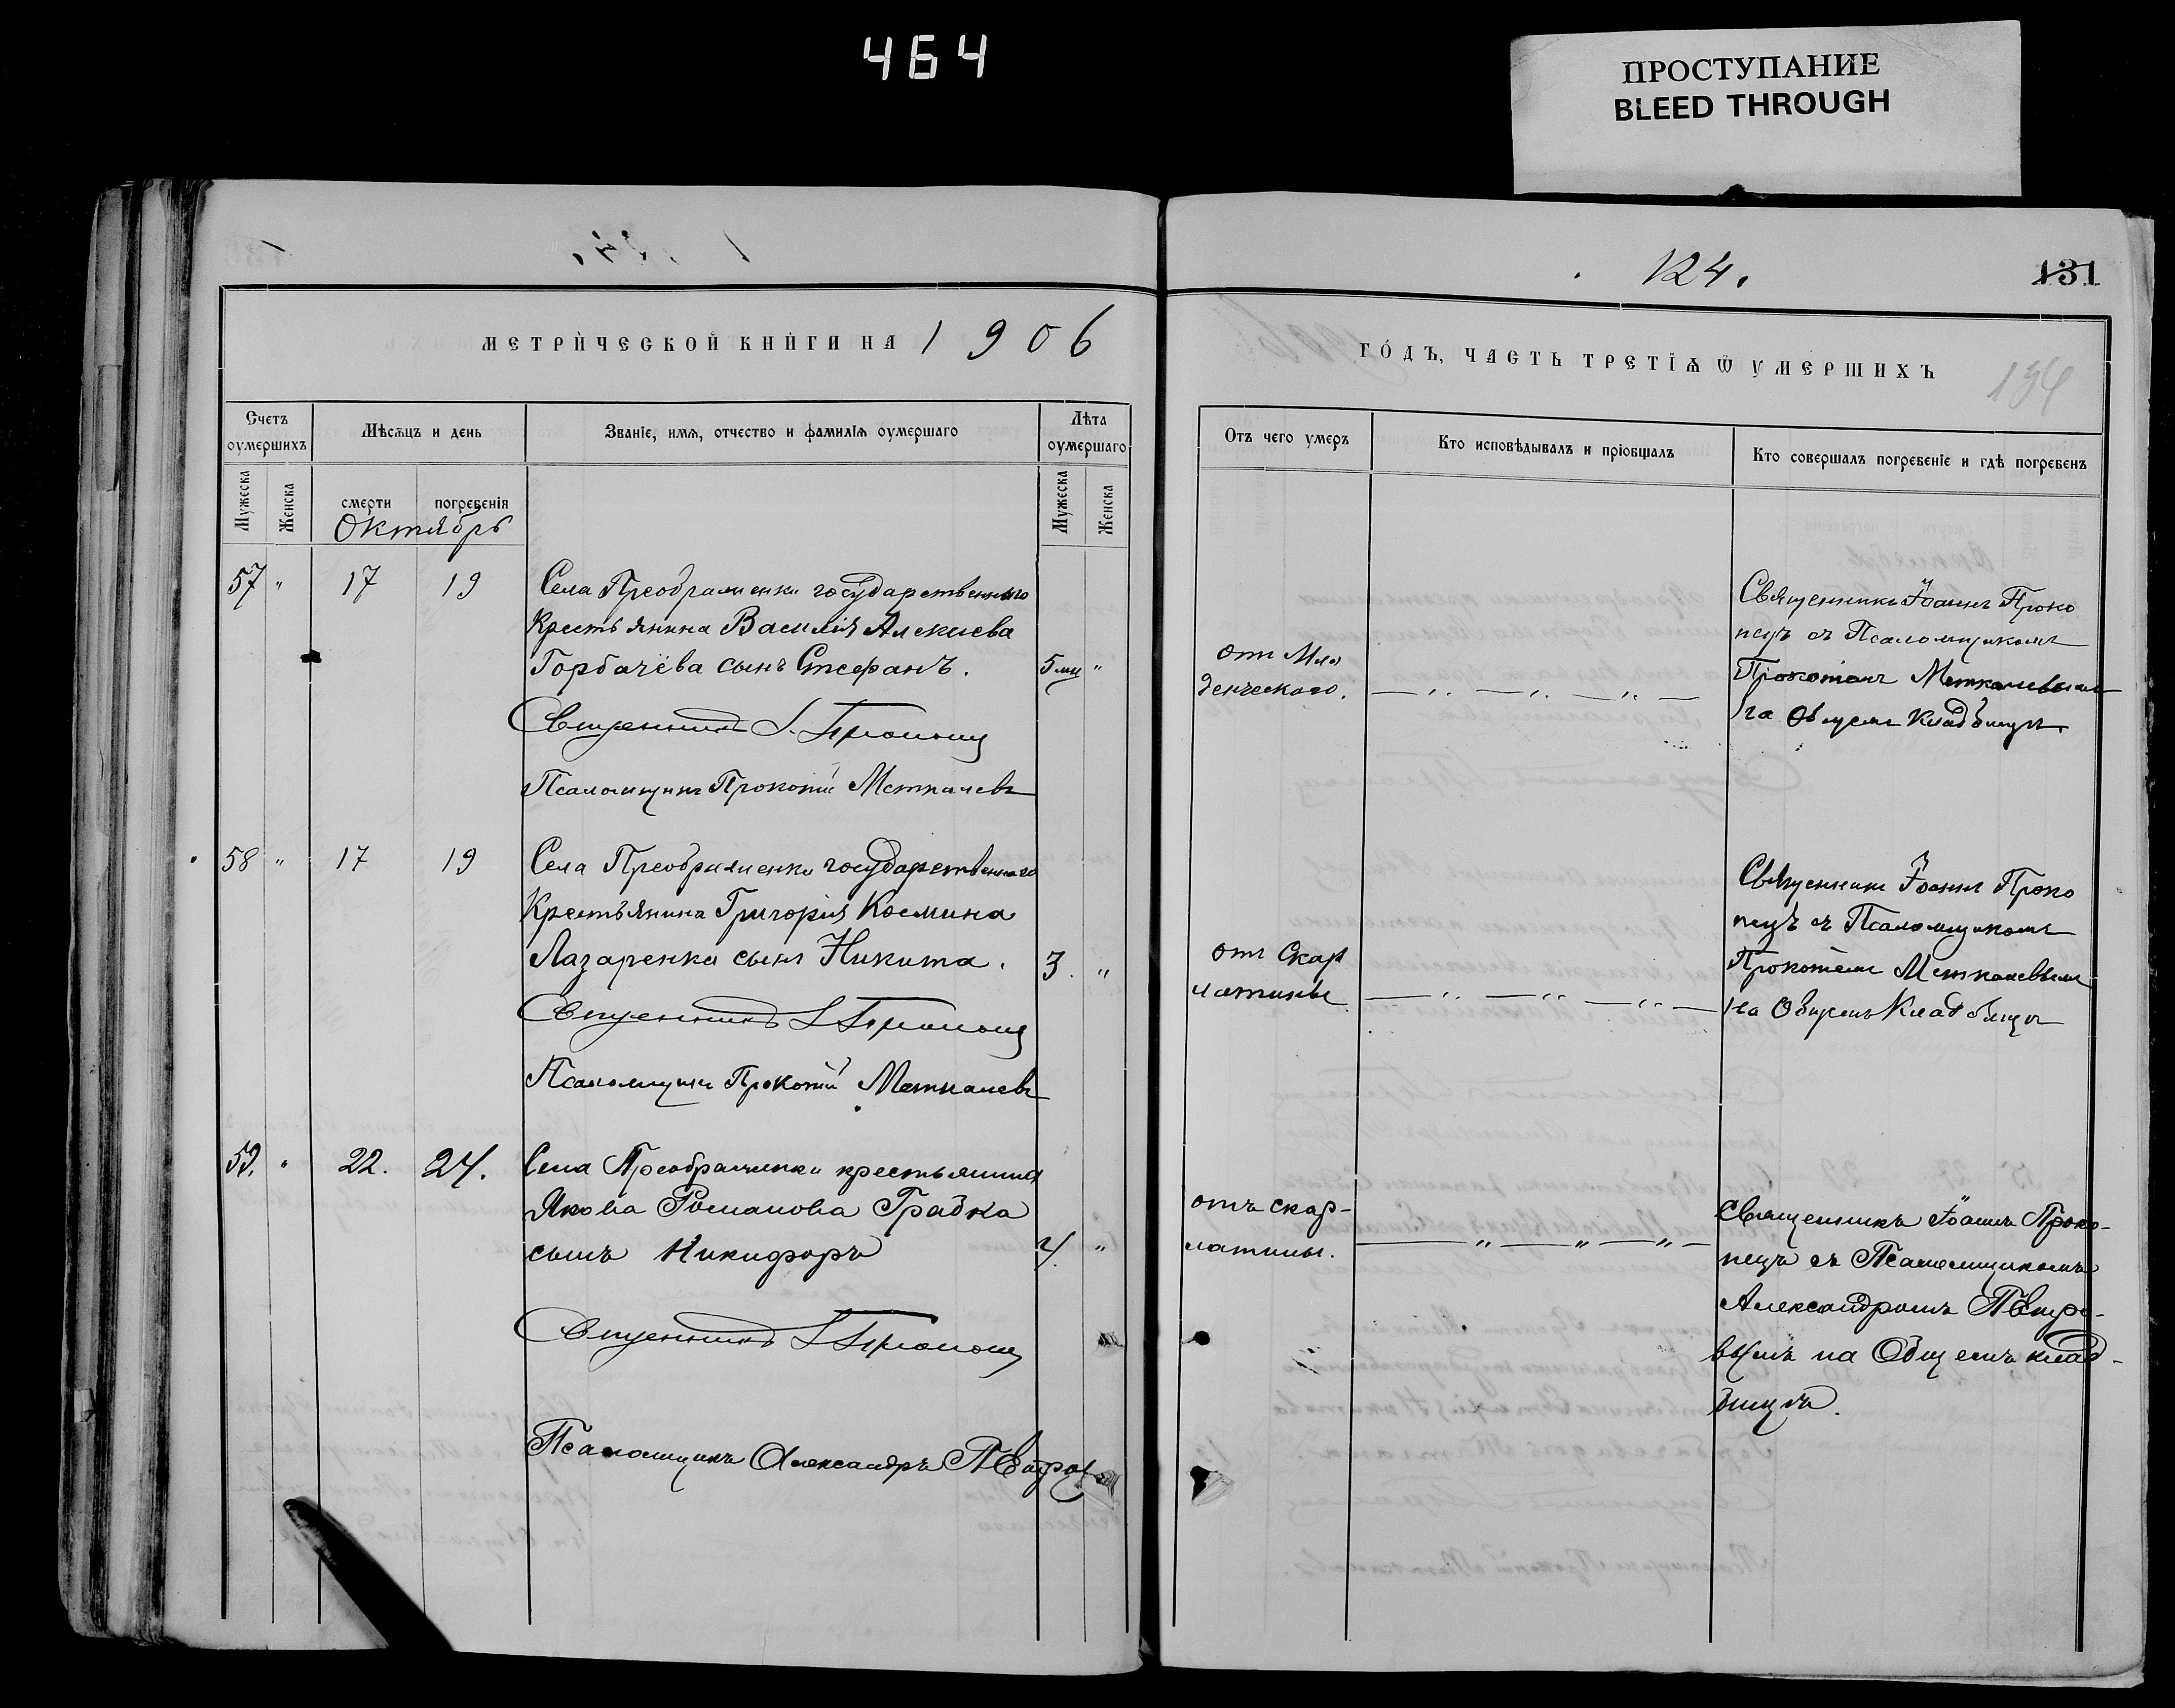 464
ПРОСТУПАНИЕ
BLEED THROUGH
124.
131
МЕТРИЧЕСКОЙ КНИГИ НА 1906
ГОДЪ, ЧАСТЬ ТРЕТІѦ Ѿ УМЕРШИХЪ
194
Счетъ оумершихъ
Мѣсѧцъ и день
Званіе, имѧ, отчество и фамиліѧ оумершаго
Лѣта оумершаго
Отъ чего умеръ
Кто исповѣдывалъ и пріобщалъ
Кто совершалъ погребеніе и гдѣ погребенъ
Мужеска
Женска
смерти
погребенія
Мужеска
Женска
Октябрь
57 " 17 19
Села Преображенки государственнаго
Крестьянина Василія Алексиева
Горбачёва сынъ Стефанъ.
5 мц "
Священникъ І. Прокопец
Псаломщикъ Прокопій Меткалевъ
отъ Мла
денческаго.
— " — " — " —
Священникъ Іоаннъ Проко
пецъ съ Псаломщикомъ
Прокопіемъ Меткалевымъ
на Общемъ Кладбищѣ.
58 " 17 19
Села Преображенки государственнаго
Крестьянина Григорія Космина
Лазаренка сынъ Никита.
3. "
Священникъ І. Прокопец
Псаломщикъ Прокопій Меткалевъ
отъ Скар
латины
— " — " — " —
Священникъ Іоаннъ Проко
пецъ съ Псаломщикомъ
Прокопіемъ Меткалевымъ
на Общемъ Кладбищѣ
59. " 22. 24.
Села Преображенки крестьянина
Якова Романова Градка
сынъ Никифоръ
4. "
Священникъ І. Прокопец
Псаломщикъ Александръ Петровъ
отъ скар-
латины.
— " — " — " —
Священникъ Іоаннъ Проко-
пецъ съ Псаломщикомъ
Александромъ Петро-
вымъ на Общемъ клад-
бищѣ.